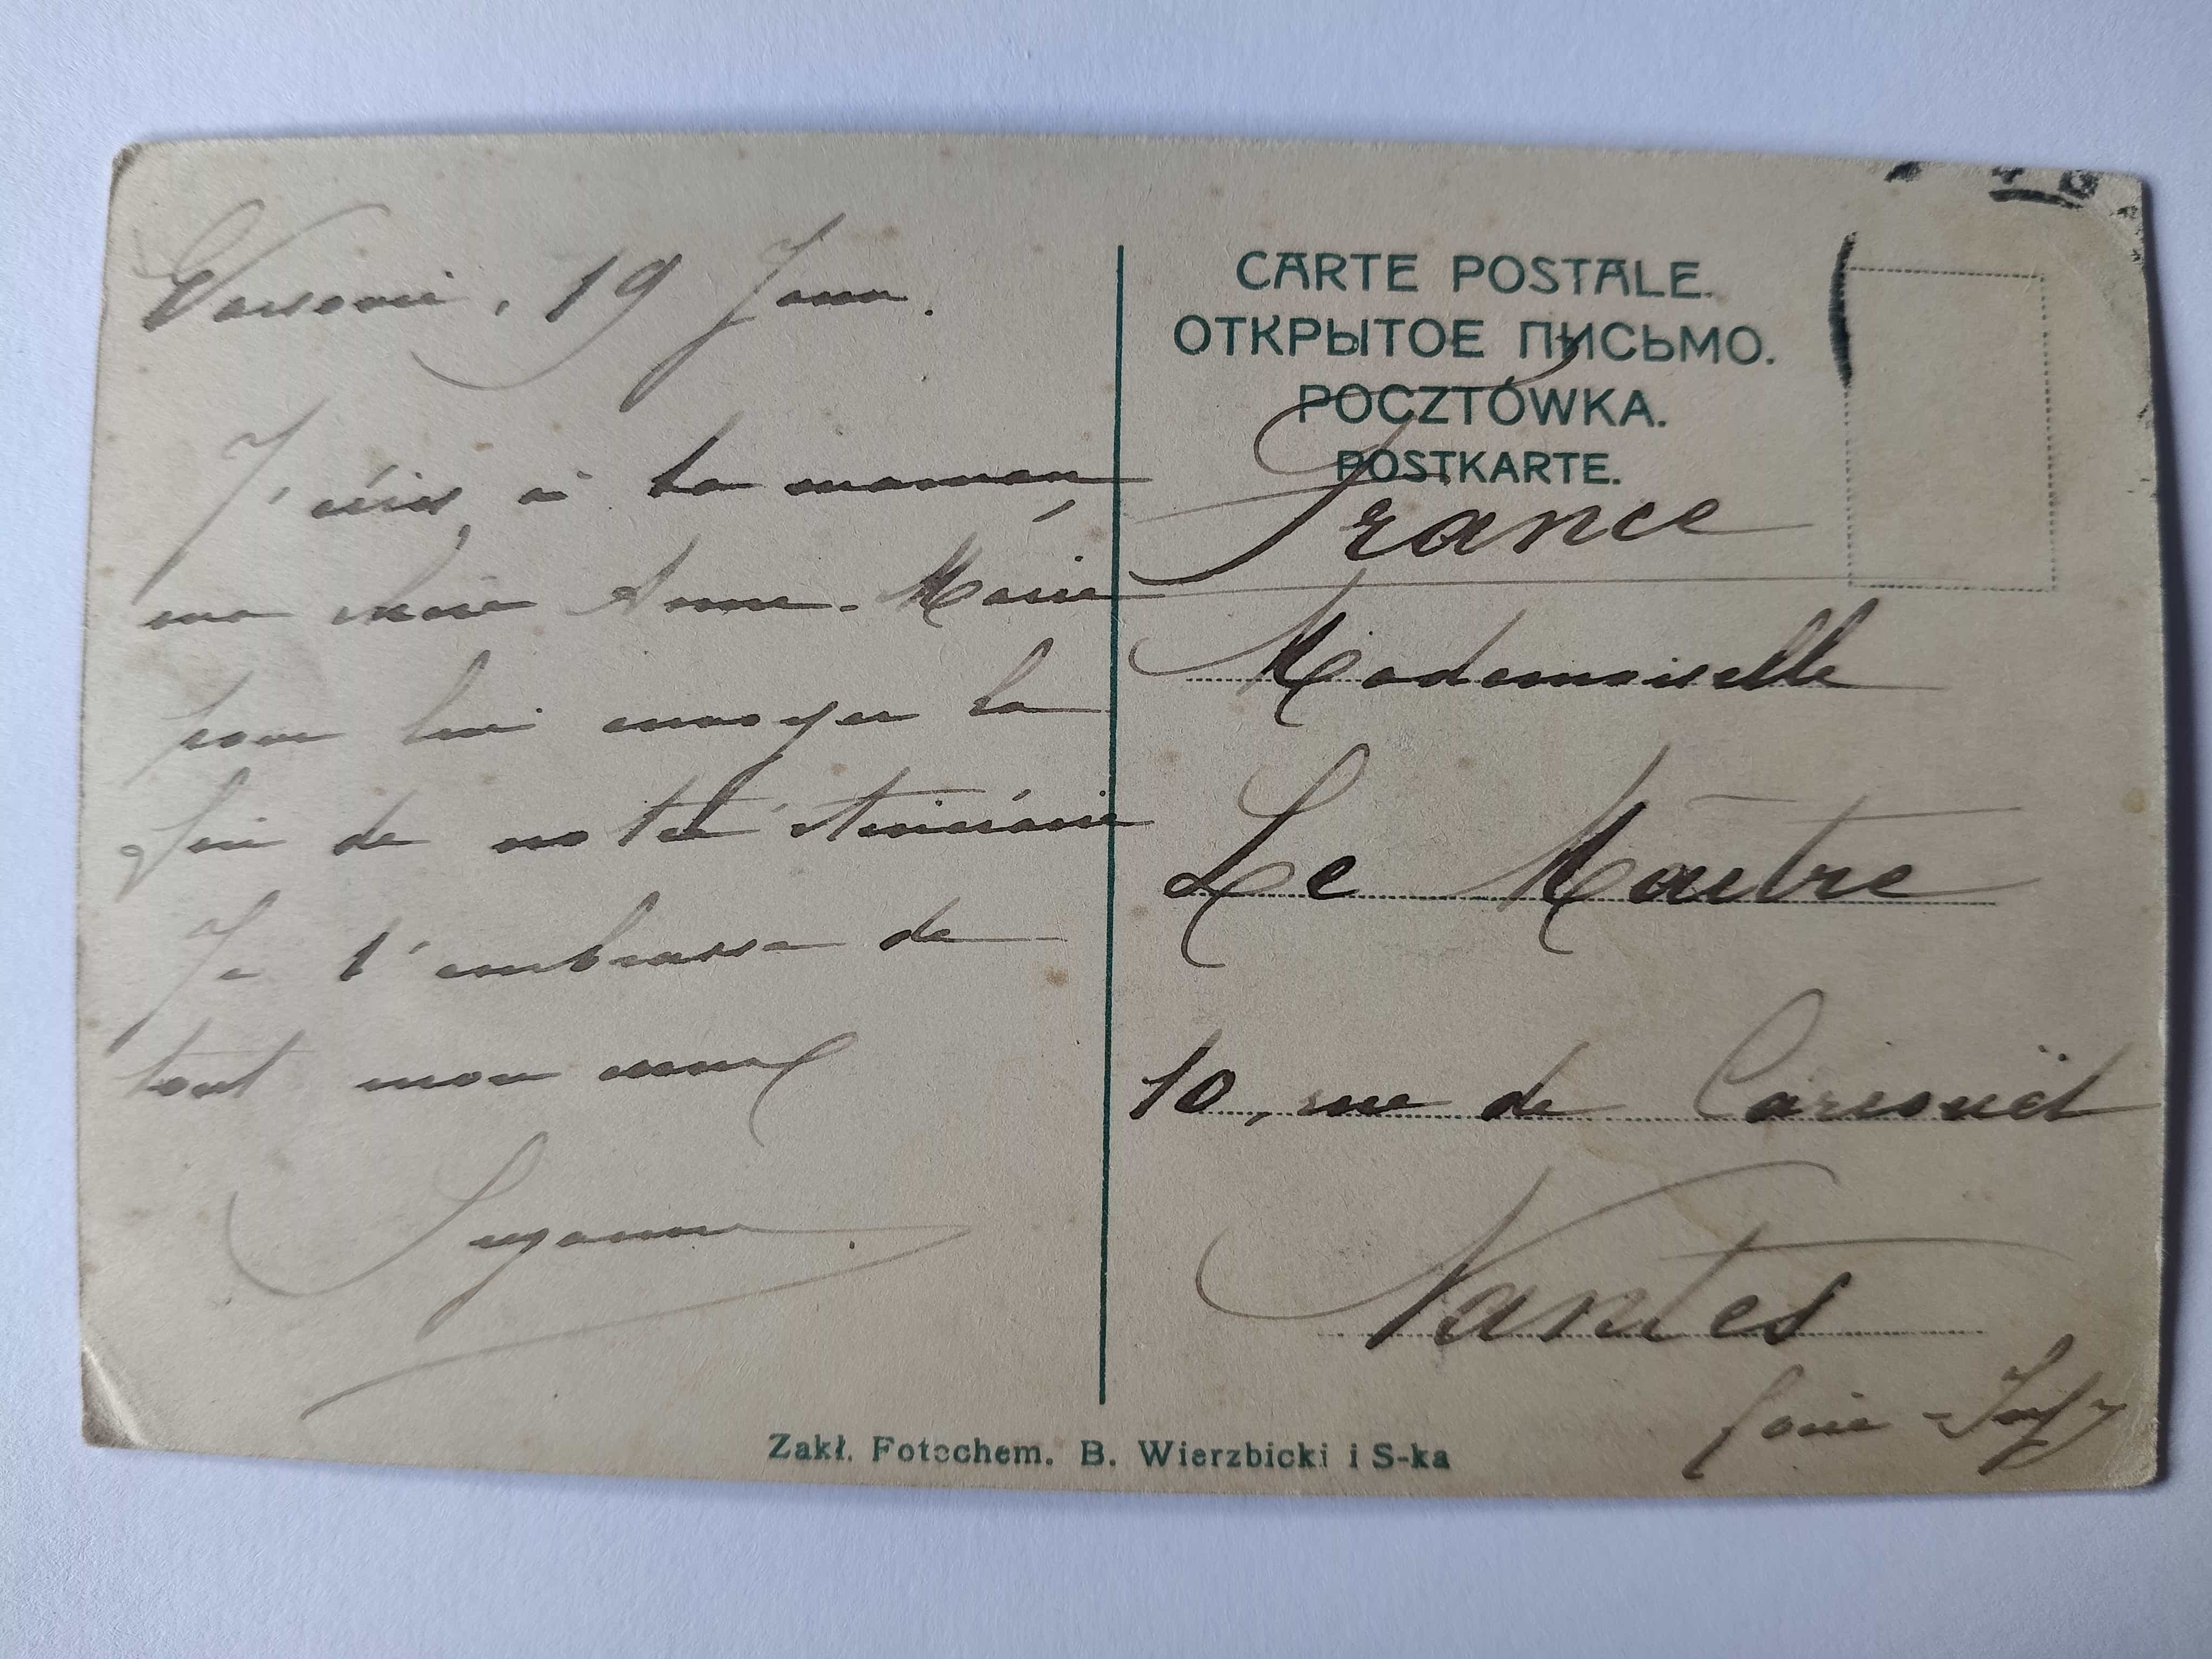 Varsovie, 19 Janv.
J'écris à ta maman,
ma chère Anne-Marie
pour lui envoyer la
fin de notre itinéraire
Je t'embrasse de
tout mon cœur
Suzanne.
CARTE POSTALE.
ОТКРЫТОЕ ПИСЬМО.
POCZTÓWKA.
POSTKARTE.
France
Mademoiselle
Le Maître
10, rue de Carcouët
Nantes
Loire-Infre
Zakł. Fotochem. B. Wierzbicki i S-ka